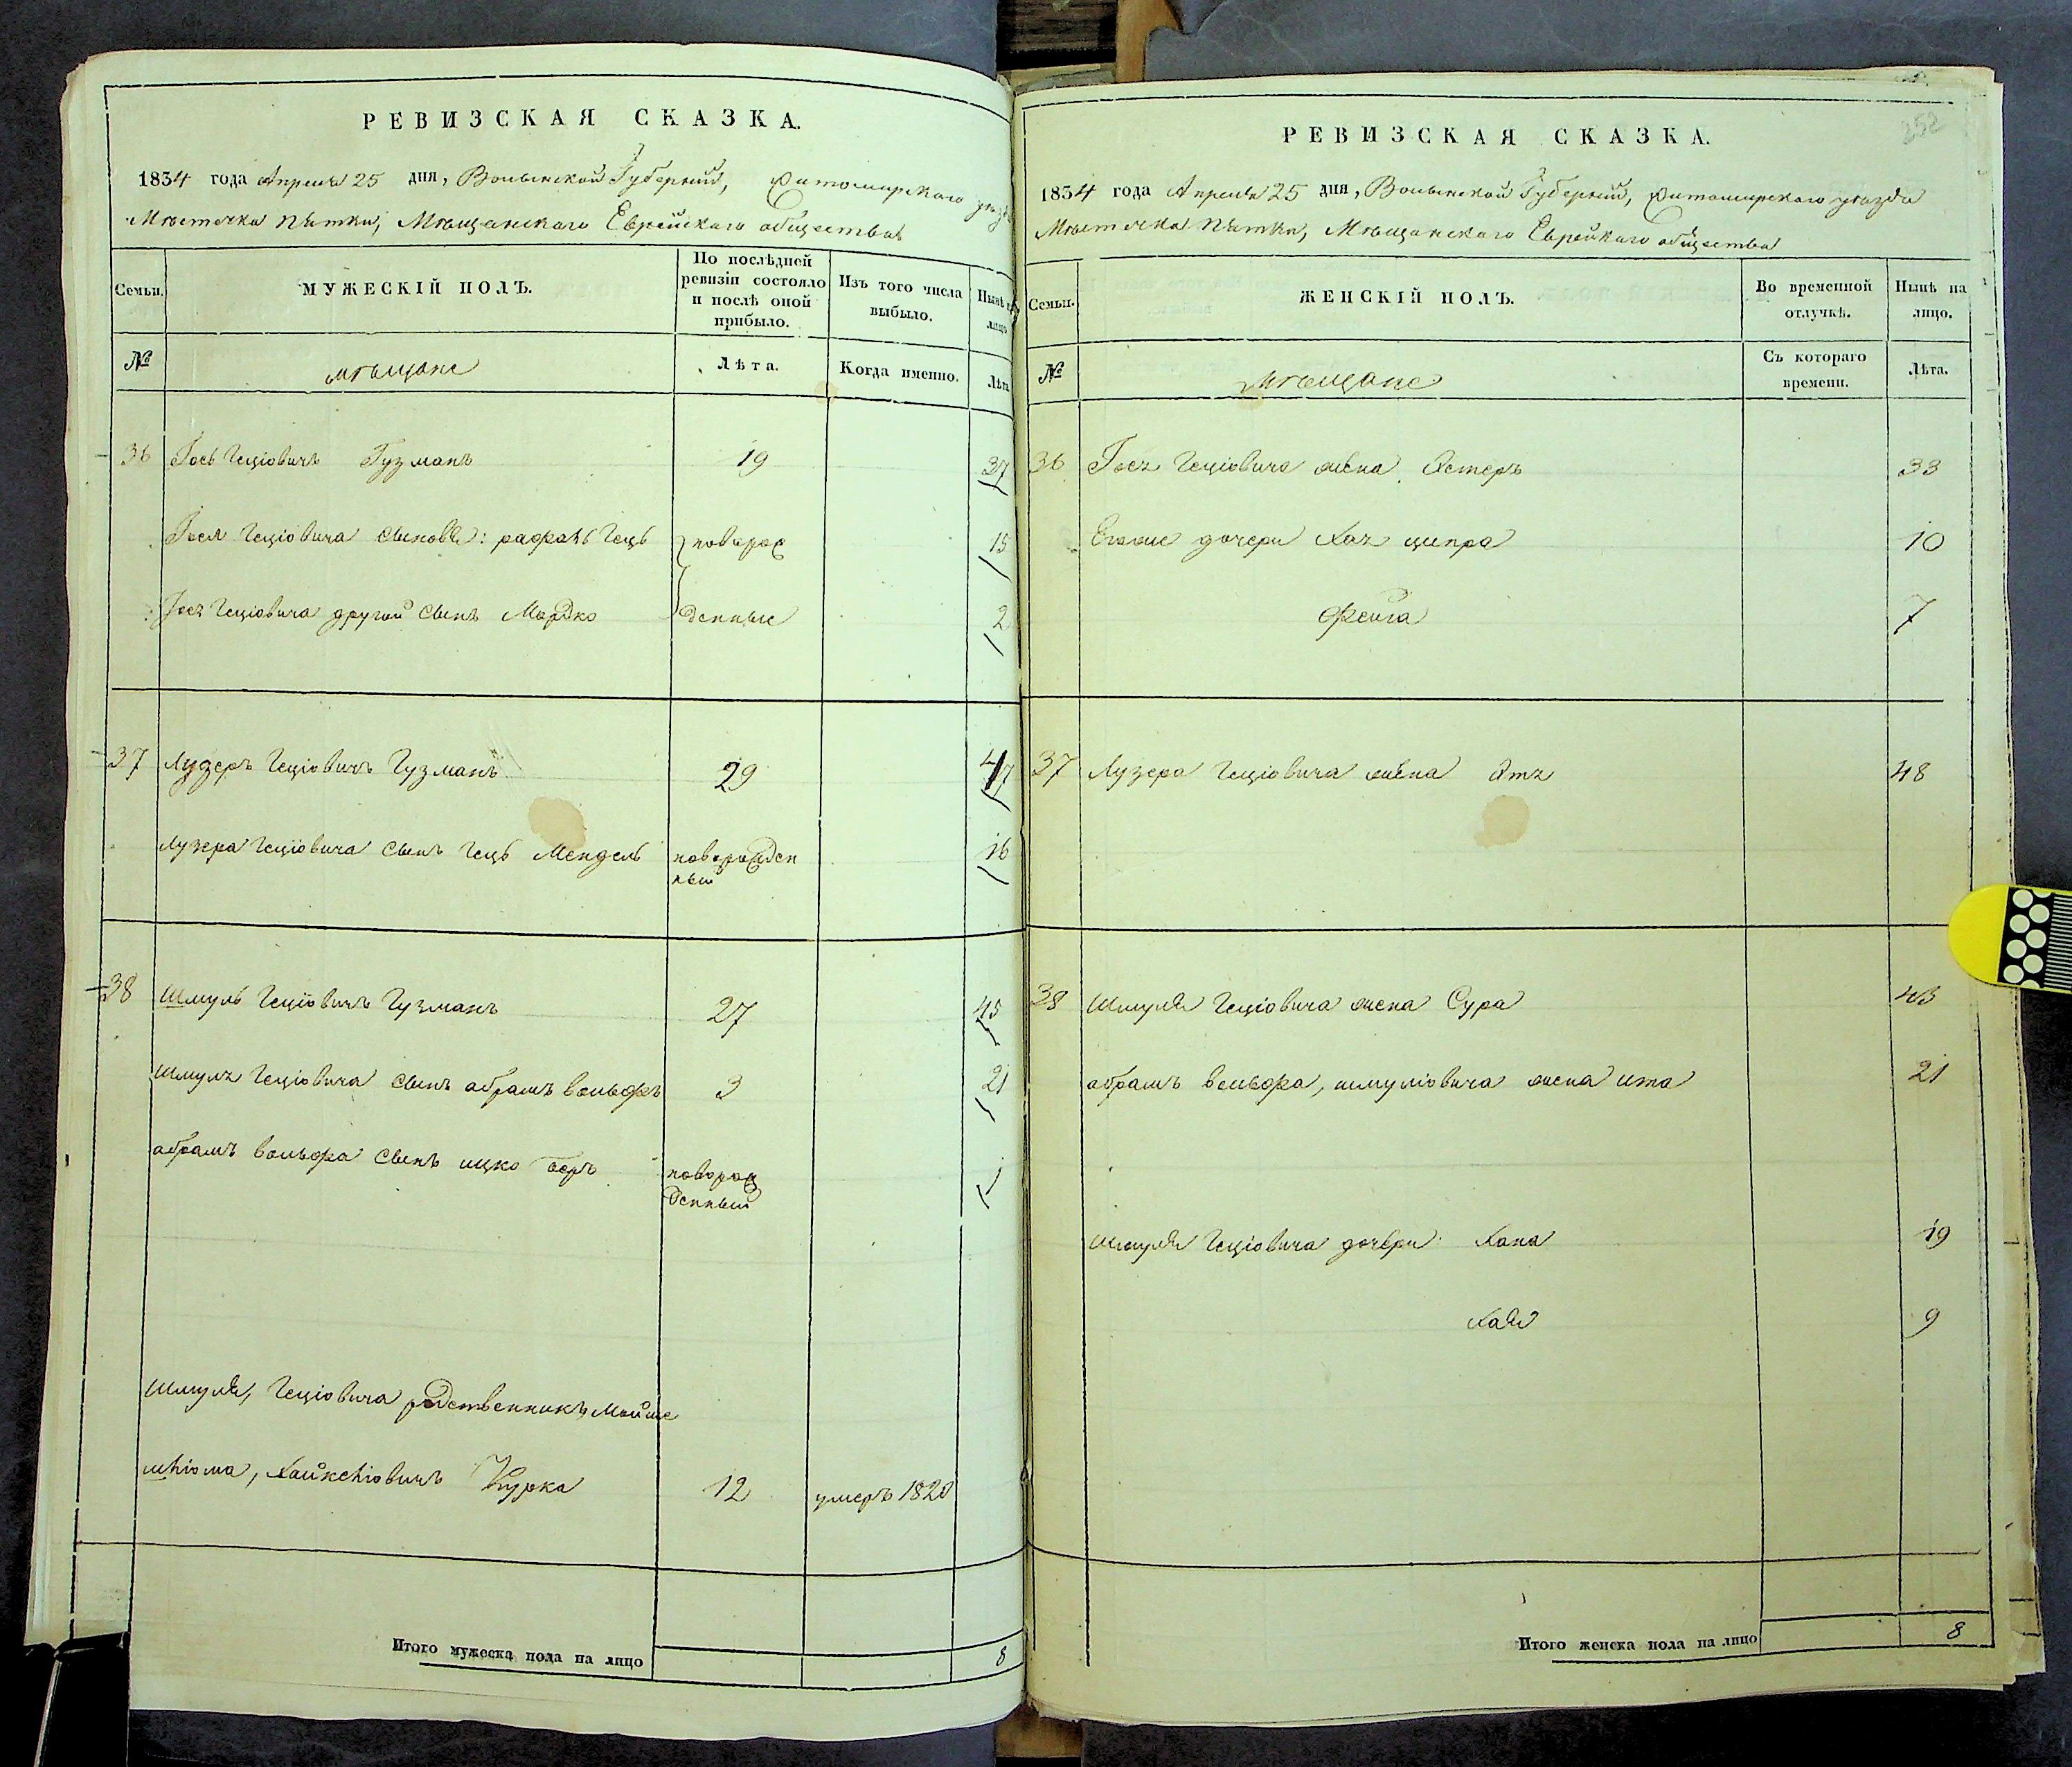 РЕВИЗСКАЯ СКАЗКА.
1834 года Апреля 25 дня, Волынской Губерний, Житомирского уезда
Мѣстечка Пятки, Мѣщанского Еврейскаго общества
Семьи. МУЖЕСКІЙ ПОЛЪ. По послѣдней ревизіи состояло и послѣ оной прибыло. Изъ того числа выбыло. Нынѣ на лицо
№ мѣщане Лѣта. Когда именно. Лѣта
36 Іось Геціовичъ Гузманъ 19 37
Іося Геціовича сыновья: рафаѣль Гець новорож 15
Іося Геціовича другой сынъ Мордко денные 2
37 Лузеръ Геціовичъ Гузманъ 29 47
Лузера Геціовича сынъ Гець Мендель новорожден 16
ный
38 Шмуль ГецІовичъ Гузманъ 27 45
Шмуля Геціовича сынъ абрамъ вольфъ 3 21
абрамъ вольфа сынъ ицко беръ новорож 1
денный
Шмуля, Геціовича родственникъ, Мойше
шліома, Хайкелiовичъ Курка 12 умеръ 1820
Итого мужеска пола на лицо 8
252
РЕВИЗСКАЯ СКАЗКА.
1834 года Апреля 25 дня, Волынской Губерний, Житомирского уезда
Мѣстечка Пятки, Мѣщанского Еврейкаго общества
Семьи. ЖЕНСКІЙ ПОЛЪ. Во временной отлучкѣ. Нынѣ на лицо.
№ Мѣщане Съ котораго времени. Лѣта.
36 Іося Геціовича жена Естеръ 33
Егоже дочери Хая ципра 10
Фейга 7
37 Лузера Геціовича жена Этя 48
38 Шмуля Геціовича жена Сура 43
абрамъ вольфа, шмуліовича жена ита 21
Шмуля Геціовича дочери Хана 19
Хая 9
Итого женска пола на лицо 8